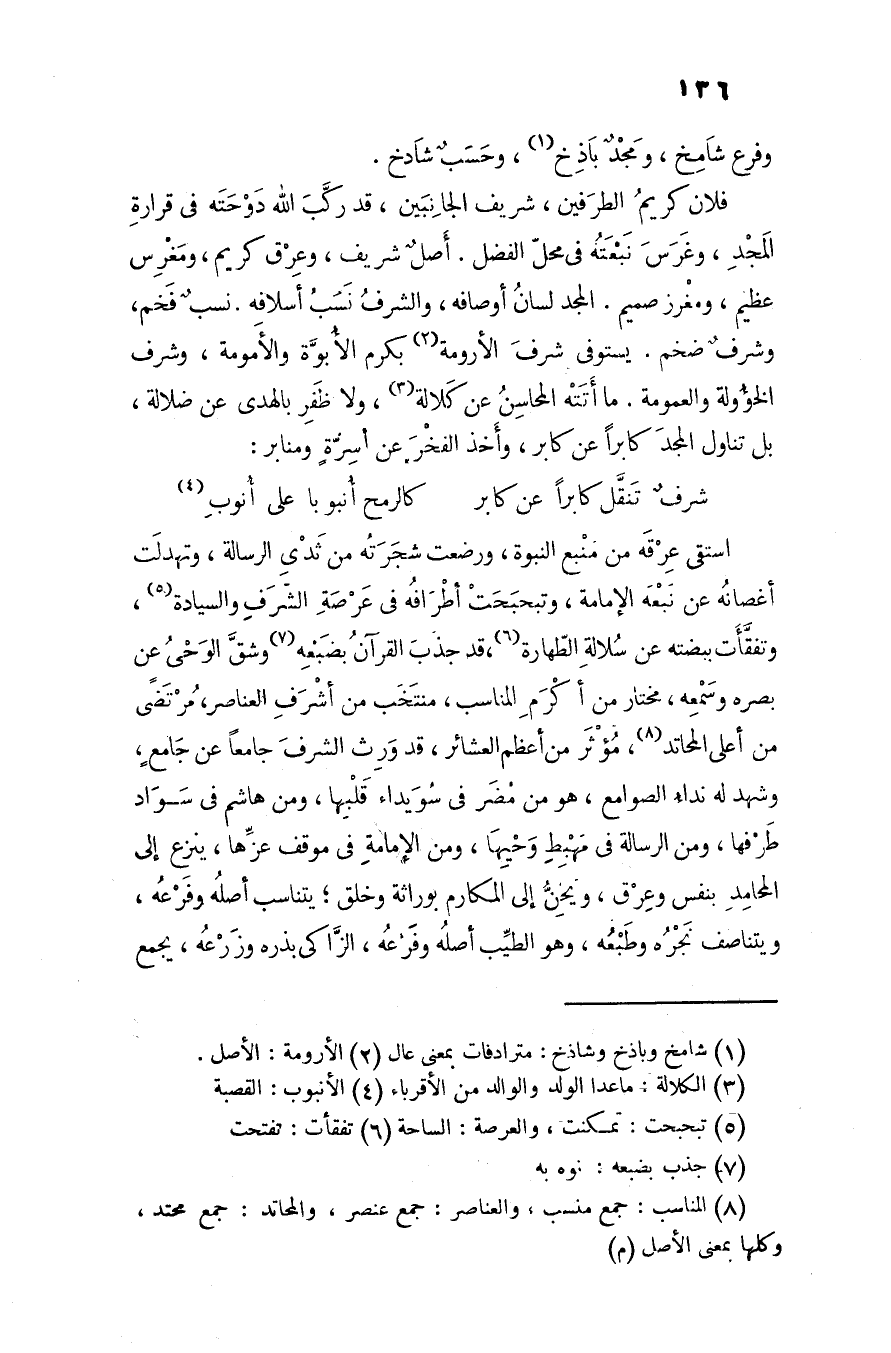 ١٣٦
وفرع شامِخ ، ومَجْدٌ بَاذِخ(١) ، وحَسَبٌ شادخ .
فلان كريمُ الطرَفين ، شريف الجانِبَين ، قد ركَّبَ الله دَوْحَتَه فى قرارةِ
المَجْدِ ، وغَرَسَ نَبْعَتَهُ فى محلّ الفضل . أصلٌ شريف ، وعِرْق كريم ، ومَغْرِس
عظيم ، ومغْرز صميم . المجد لسانُ أوصافه ، والشرفُ نَسَبُ أسلافه . نسبٌ فَخم،
وشرفٌ ضخم . يستوفى شرفَ الأرومة(٢) بكرم الأُبوَّة والأمومة ، وشرف
الخؤولة والعمومة . ما أتَتْه المحاسنُ عن كَلالة(٣) ، ولا ظَفِر بالهدى عن ضلالة ،
بل تناول المجدَ كابراً عن كابر ، وأخذ الفخْرَ عن أسِرَّةٍ ومنابر :
شرفٌ تَنقَّل كابراً عن كابر كالرمح أنبوبا على أُنبوبِ(٤)
استقى عِرْقَه من مَنْبع النبوة ، ورضعت شجَرَتُه من ثَدْىِ الرسالة ، وتهدلَت
أغصانُه عن نَبْعَه الإمامة ، وتبحبَحَتْ أطْرَافُه فى عَرْصَةِ الشَّرَفِ والسيادة(٥) ،
وتفقَّأَت بيضته عن سُلالةِ الطّهارة(٦)،قد جذَبَ القرآنُ بضَبْعِه(٧)وشقَّ الوَحْىُ عن
بصره وسَمْعِه ، مختار من أكْرَمِ المناسب ، منتَخَب من أشْرَفِ العناصر، مُرْتَضًى
من أعلى المحاتد(٨)، مُؤْثَر من أعظم العشائر ، قد وَرِث الشرفَ جامعاً عن جَامعٍ،
وشهد له نداء الصوامع ، هو من مُضَر فى سُوَيداء قَلْبِها ، ومن هاشم فى سَواد
طَرْفها ، ومن الرسالة فى مَهْبِطِ وَحْيِهَا ، ومن الإمامةِ فى موقف عزِّها ، ينزع إلى
المحامِدِ بنفس وعِرْق ، ويَحِنُّ إلى المكارم بوراثة وخلق ؛ يتناسب أصلُه وفَرْعُه ،
ويتناصف نَجْرُه وطَبْعُه ، وهو الطيِّب أصلُه وفَرْعُه ، الزَّاكى بذره وزَرْعُه ، يجمع
(١) شامخ وباذخ وشاذخ : مترادفات بمعنى عال (٢) الأرومة : الأصل .
(٣) الكلالة : ماعدا الولد والوالد من الأقرباء (٤) الأنبوب : القصبة
(٥) تبحبحت : تمكنت ، والعرصة : الساحة (٦) تفقأت : تفتحت
(٧) جذب بضبعه : نوه به
(٨) المناسب : جمع منسب ، والعناصر : جمع عنصر ، والمحاتد : جمع محتد ،
وكلها بمعنى الأصل (م)